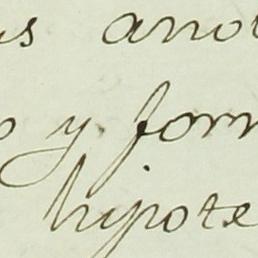 us ano
o y form
hipote